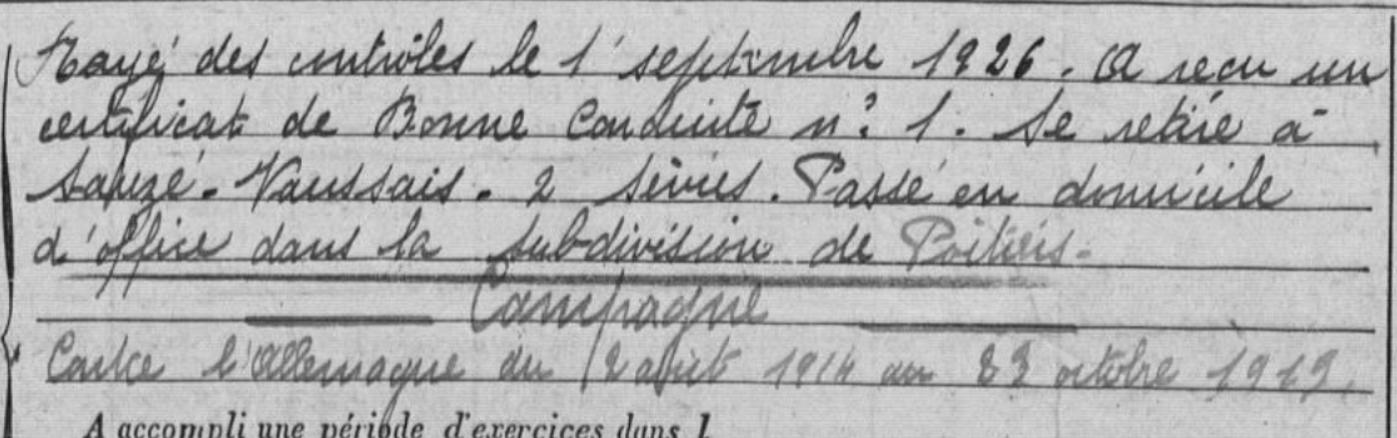 Rayé des contrôles le 1er septembre 1926. A reçu un
certificat de Bonne Conduite n° 1. Se retire à
Sauzé-Vaussais. 2 Sèvres. Passé en domicile
d'office dans la subdivision de Poitiers.
Campagne
Contre l'Allemagne du 2 août 1914 au 23 octobre 1919.
A accompli une période d'exercices dans l